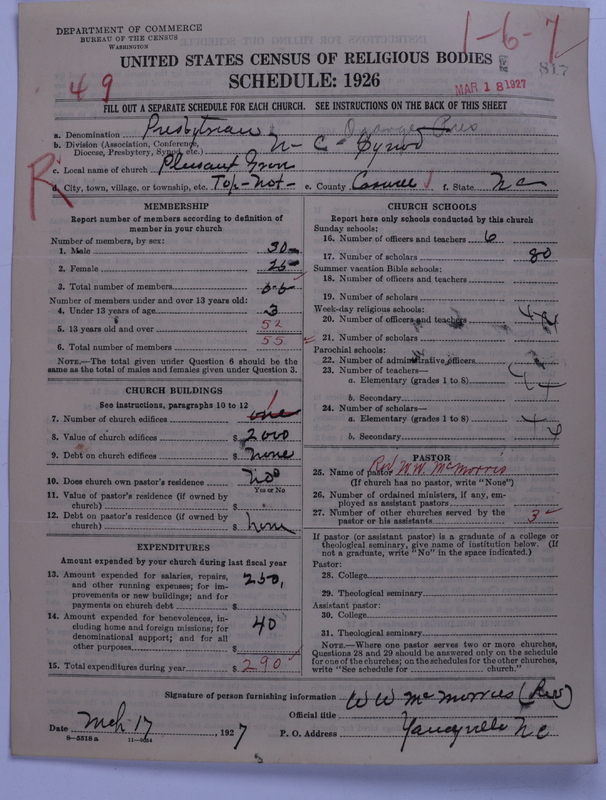 DEPARTMENT OF COMMERCE
BUREAU OF THE CENSUS
WASHINGTON
1-6-7
UNITED STATES CENSUS OF RELIGIOUS BODIES
817
SCHEDULE: 1926
49
MAR 18 1927
FILL OUT A SEPARATE SCHEDULE FOR EACH CHURCH. SEE INSTRUCTIONS ON THE BACK OF THIS SHEET
a. Denomination Presbyterian
b. Division (Association, Conference, Diocese, Presbytery, Synod, etc.) N-C- Synod
c. Local name of church Pleasant Grove
R
d. City, town, village, or township, etc. Top-Not- e. County Caswell f. State NC
MEMBERSHIP
Report number of members according to definition of
member in your church
Number of members, by sex:
1. Male 30
2. Female 25
3. Total number of members 55
Number of members under and over 13 years old:
4. Under 13 years of age 3
5. 13 years old and over 52
6. Total number of members 55
NOTE.—The total given under Question 6 should be the
same as the total of males and females given under Question 3.
CHURCH BUILDINGS
See instructions, paragraphs 10 to 12
7. Number of church edifices one 1
8. Value of church edifices $ 2000
9. Debt on church edifices $ none
10. Does church own pastor's residence No
Yes or No
11. Value of pastor's residence (if owned by
church) $
12. Debt on pastor's residence (if owned by
church) $ none
EXPENDITURES
Amount expended by church during last fiscal year
13. Amount expended for salaries, repairs,
and other running expenses; for im-
provements or new buildings; and for
payments on church debt $ 250,
14. Amount expended for benevolences, in-
cluding home and foreign missions; for
denominational support; and for all
other purposes $ 40
15. Total expenditures during year $ 290
CHURCH SCHOOLS
Report here only schools conducted by this church
Sunday schools:
16. Number of officers and teachers 6
17. Number of scholars 80
Summer vacation Bible schools:
18. Number of officers and teachers
19. Number of scholars
Week-day religious schools:
20. Number of officers and teachers
21. Number of scholars
Parochial schools:
22. Number of administrative officers
23. Number of teachers—
a. Elementary (grades 1 to 8)
b. Secondary
24. Number of scholars—
a. Elementary (grades 1 to 8)
b. Secondary
PASTOR
25. Name of pastor Rev W.W. McMorris
(If church has no pastor, write "None")
26. Number of ordained ministers, if any, em-
ployed as assistant pastors
27. Number of other churches served by the
pastor or his assistants 3
If pastor (or assistant pastor) is a graduate of a college or
theological seminary, give name of institution below. (If
not a graduate, write "No" in the space indicated.)
Pastor:
28. College
29. Theological seminary
Assistant pastor:
30. College
31. Theological seminary
NOTE.—Where one pastor serves two or more churches,
Questions 28 and 29 should be answered only on the schedule
for one of the churches; on the schedules for the other churches,
write "See schedule for church."
Signature of person furnishing information W W McMorris (Rev)
Official title
Date Mch 17, 1927 P. O. Address Yanceyville NC
8-5518a 11-9054